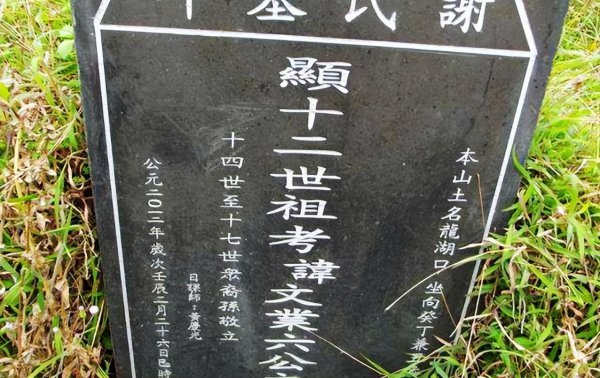 謝氏墓
本山土名龍湖口 坐向癸丁兼丑
顯十二世祖考諱文業六公
十四世至十七世眾裔孫敬立
日課師：黃慶光
公元二〇一二年歲次壬辰二月二十六日巳時